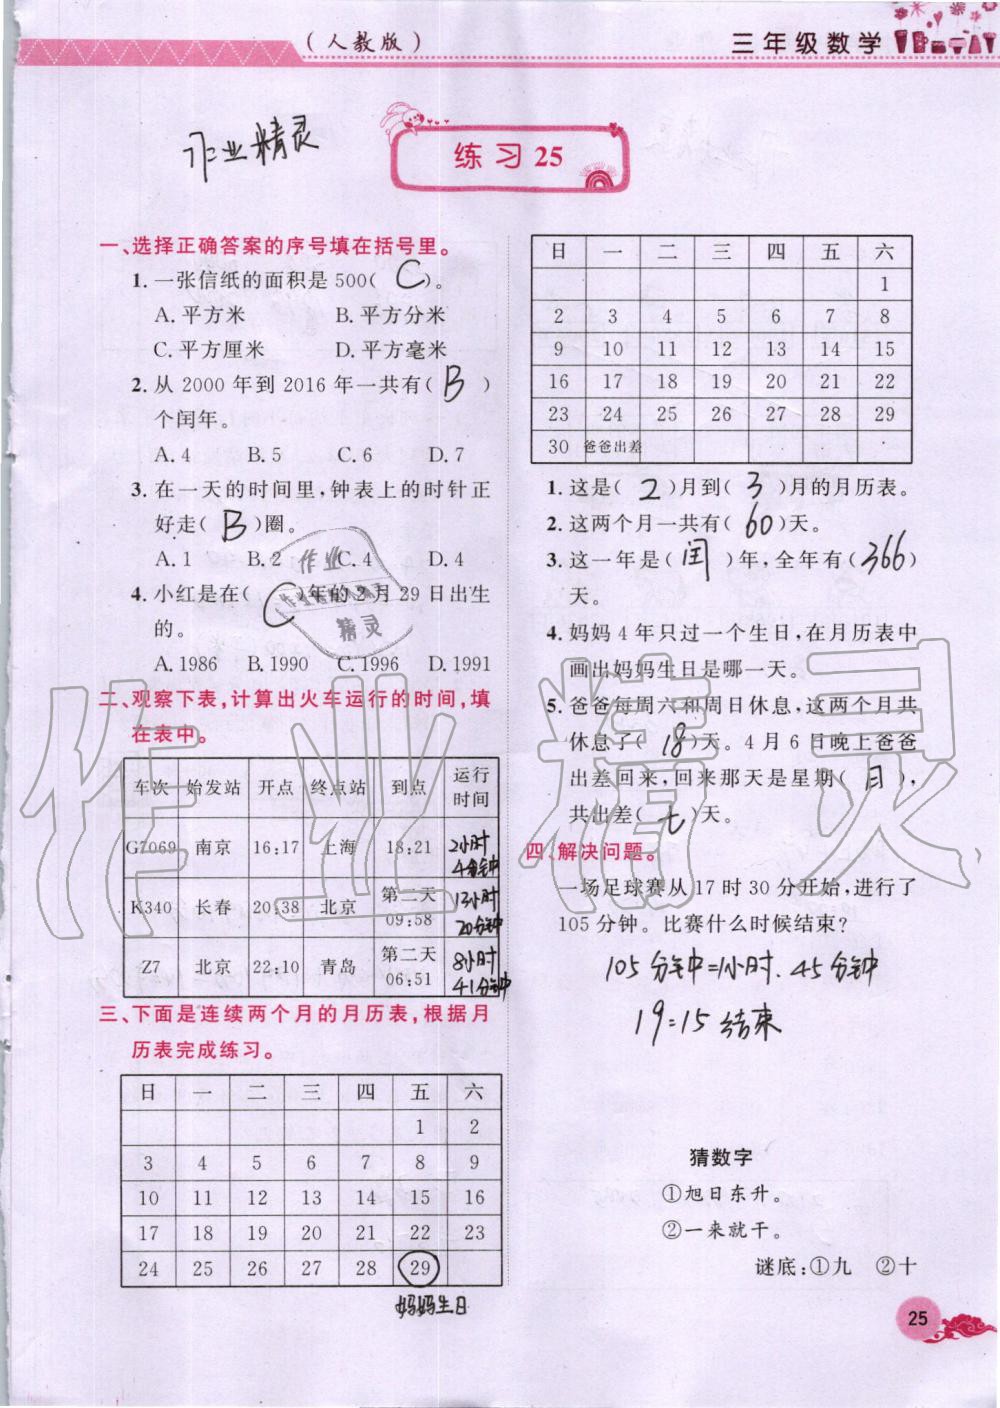 (人教版)
三年级数学
作业精灵
练习 25
一、选择正确答案的序号填在括号里。
1. 一张信纸的面积是 500( C )。
A. 平方米 B. 平方分米
C. 平方厘米 D. 平方毫米
2. 从 2000 年到 2016 年一共有( B )
个闰年。
A. 4 B. 5 C. 6 D. 7
3. 在一天的时间里,钟表上的时针正
好走( B )圈。
A. 1 B. 2 C. 4 D. 4
4. 小红是在( C )年的 2 月 29 日出生
的。
A. 1986 B. 1990 C. 1996 D. 1991
二、观察下表,计算出火车运行的时间,填
在表中。
车次 始发站 开点 终点站 到点 运行时间
G7069 南京 16:17 上海 18:21 2小时4分钟
K340 长春 20:38 北京 第二天09:58 13小时20分钟
Z7 北京 22:10 青岛 第二天06:51 8小时41分钟
三、下面是连续两个月的月历表,根据月
历表完成练习。
日 一 二 三 四 五 六
1 2
3 4 5 6 7 8 9
10 11 12 13 14 15 16
17 18 19 20 21 22 23
24 25 26 27 28 29
妈妈生日
日 一 二 三 四 五 六
1
2 3 4 5 6 7 8
9 10 11 12 13 14 15
16 17 18 19 20 21 22
23 24 25 26 27 28 29
30 爸爸出差
1. 这是( 2 )月到( 3 )月的月历表。
2. 这两个月一共有( 60 )天。
3. 这一年是( 闰 )年,全年有( 366 )
天。
4. 妈妈 4 年只过一个生日,在月历表中
画出妈妈生日是哪一天。
5. 爸爸每周六和周日休息,这两个月共
休息了( 18 )天。4 月 6 日晚上爸爸
出差回来,回来那天是星期( 日 ),
共出差( 七 )天。
四、解决问题。
一场足球赛从 17 时 30 分开始,进行了
105 分钟。比赛什么时候结束?
105分钟=1小时.45分钟
19:15结束
猜数字
①旭日东升。
②一来就干。
谜底:①九 ②十
25
作业精灵
作业
精灵